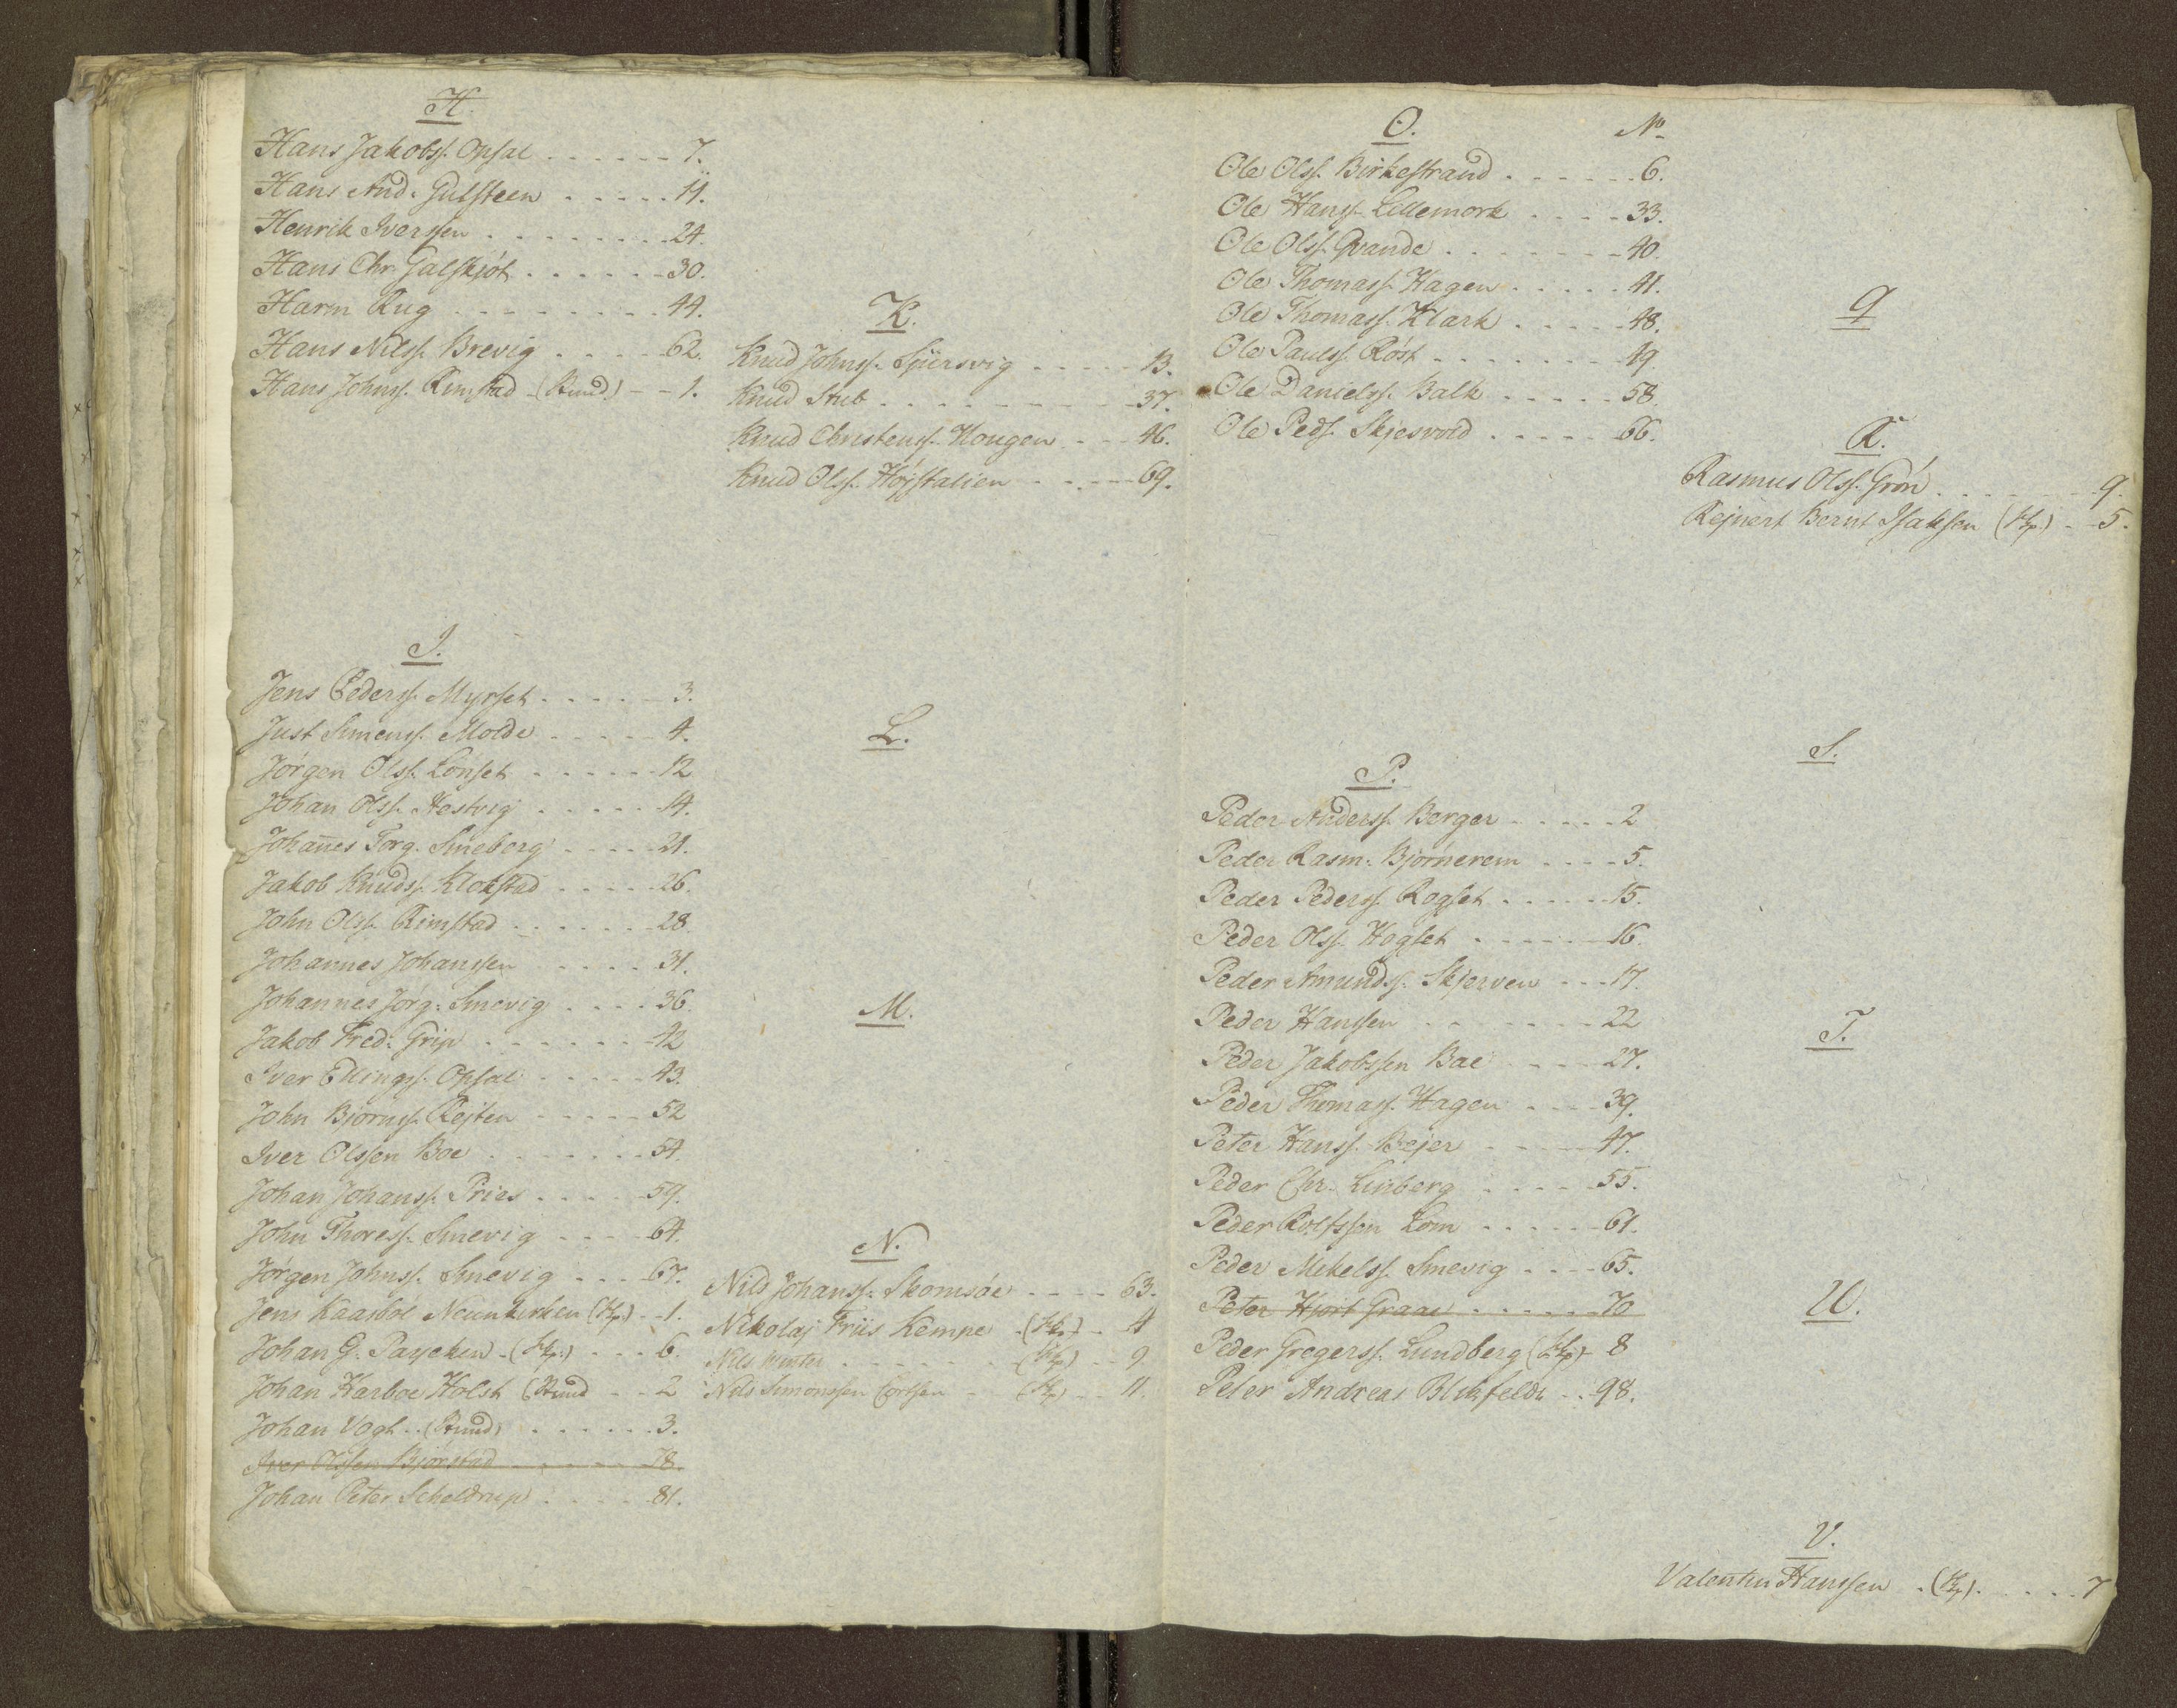 H.
Hans Jakobss. Opsal . . . . . . 7.
Hans And: Gulsteen . . . . . 11.
Henrik Iverssen . . . . . . . 24.
Hans Chr. Galskjöt . . . . . . 30.
Harm Rug . . . . . . . . 44.
Hans Nilss. Brevig . . . . 62.
Hans Johnss. Rimstad - (Kund.) - - 1.
I.
Jens Pederss. Myrset . . . . . 3.
Just Simenss. Molde . . . . . 4.
Jörgen Olss. Lonset . . . . . . 12
Johan Olss. Hestvig . . . . . 14.
Johan̄es Torg. Smeborg . . . . . 21.
Jakob Knudss. Klokstad . . . . . 26.
John Olss. Rimstad . . . . . . . 28.
Johannes Johanssen . . . . 31.
Johannes Jörg: Smevig . . . . 36.
Jakob Fred: Grip . . . . . . . 42
Iver Ellingss. Opsal . . . . . 43.
John Björnss. Rejten . . . . . 52
Iver Olssen Boe . . . . . . . 54.
Johan Johanss. Pries . . . . . 59.
John Thoress. Smevig . . . . 64.
Jörgen Johnss. Smevig . . . 67.
Jens Kaasböl Neunkirken (Hp) - - 1.
Johan G. Paycken - (Hp.) . . . 6.
Johan Harboe Holst (Kund - - 2
Johan Vogt . . (Kund) . . . . . . 3.
Iver Olssen Bjorstad . . . . . . 78.
Johan Peter Scheldrup . . . . . 81.
K.
Knud Johnss. Spjersvig . . . . . 13.
Knud Stub . . . . . . . . . 37.
Knud Christenss. Hougen . . . 46.
Knud Olss. Höjstalien . . . . . 69.
L.
M.
N.
Nils Johanss. Skomsöe . . . . 63.
Nikolaj Friis Kempe . (Hp.) - 4
Nils Winter . . . . . . . (Hp) - - 9
Nils Simonssen Cortsen - (Hp) - - 11.
O. No.
Ole Olss. Birkestrand . . . . . . 6.
Ole Hanss. Lillemork . . . . 33.
Ole Olss. Qvande . . . . . . . 40.
Ole Thomass. Hagen . . . . . 41.
Ole Thomass. Klark . . . . . 48.
Ole Paulss. Röst . . . . . . . 49.
Ole Danielss. Balk . . . . . 58.
Ole Peds. Skjesvold . . . . . 66.
P.
Peder Anderss. Berger . . . . . 2
Peder Rasm: Björnerem . . . . 5.
Peder Pederss. Rogset . . . . . . 15.
Peder Olss. Hogset . . . . . . 16.
Peder Amundss. Skjerven . . . 17.
Peder Hanssen . . . . . . . 22
Peder Jakobssen Bae . . . . 27.
Peder Thomass. Hagen . . . . 39.
Peter Hanss. Bejer . . . . . 47.
Peder Chr. Linberg . . . . . 55.
Peder Rolfssen Lom . . . . . . 61.
Peder Mikelss. Smevig . . . . 65.
Peter Hjort Graae . . . . . . 70
Peder Gregerss. Lundberg (Hp) - 8
Peter Andreas Blikfeldt . . 98.
Q
R.
Rasmus Olss. Grön . . . . . . . 9.
Rejnert Bernt Isaksen (Hp.) . - 5.
S.
T.
U.
V.
Valentin Hanssen . (Hp) . . . . . 7